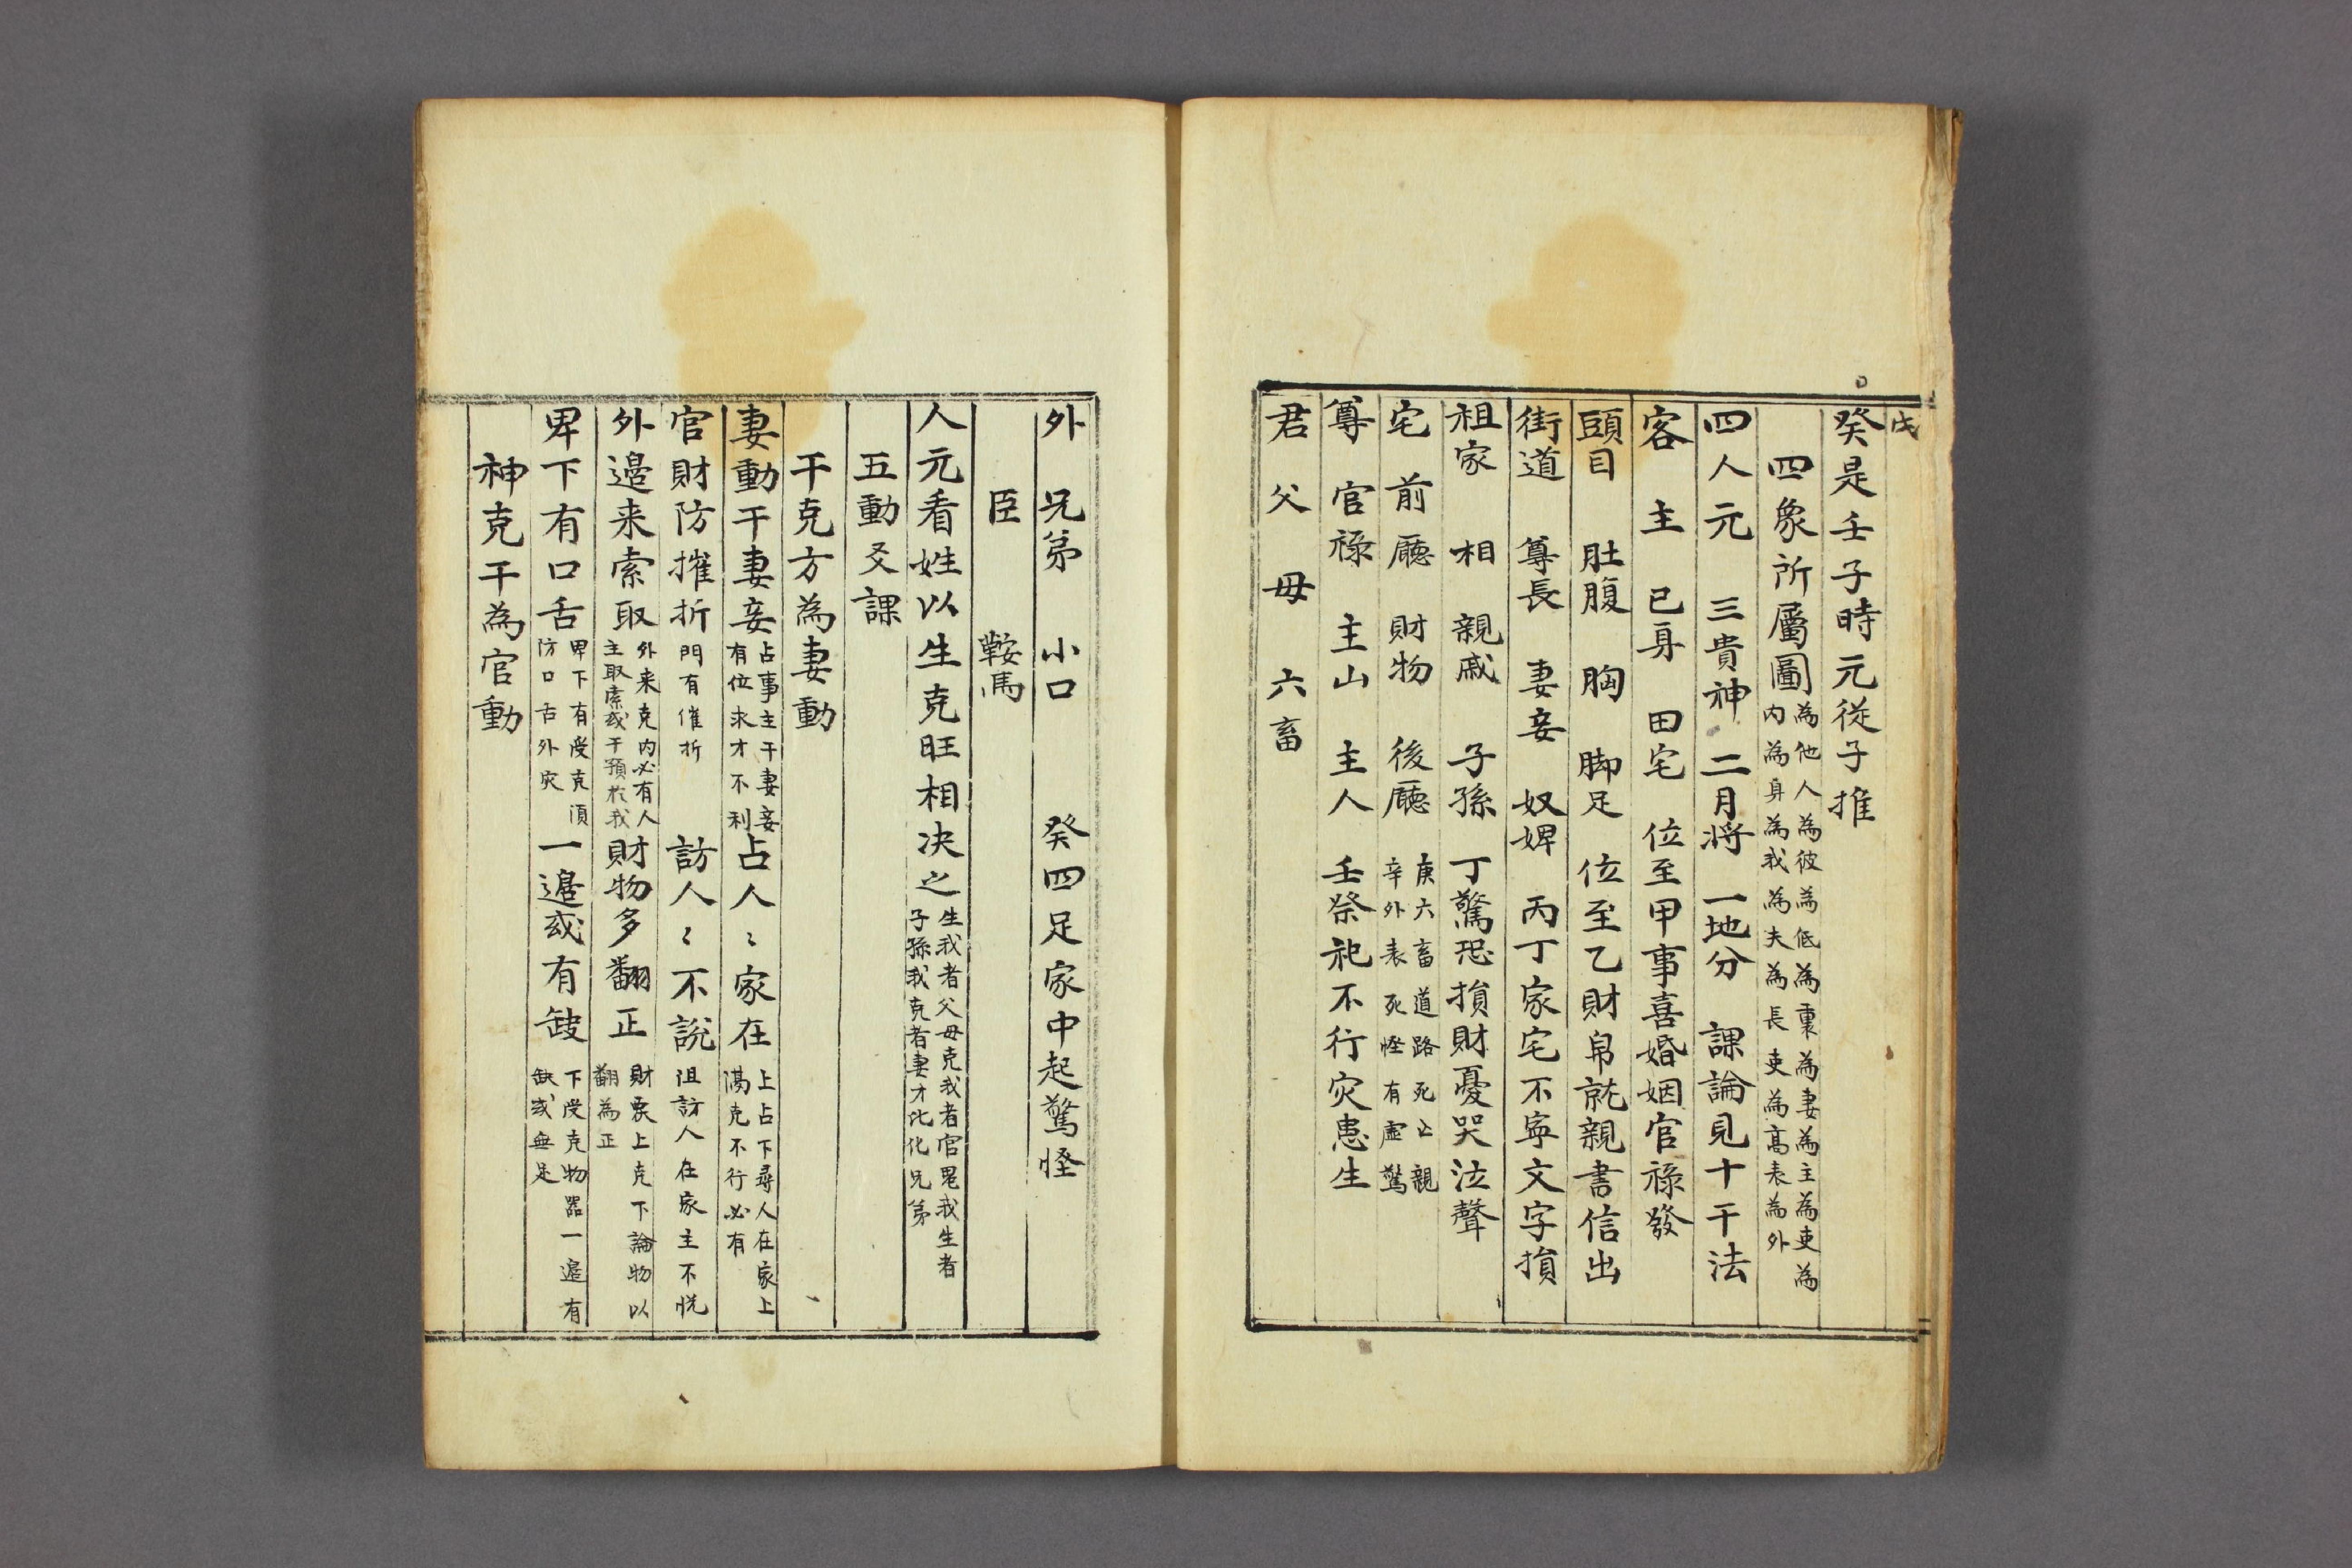 戊
癸是壬子時元從子推
四象所屬圖
為他人為彼為低為裏為妻為主為吏為
内為身為我為夫為長吏為髙表為外
四人元 三貴神 二月将 一地分 課論見十干法
客 主 已身 田宅 位至甲事喜婚姻官祿發
頭目 肚腹 胸 脚足 位至乙財帛就親書信出
街道 尊長 妻妾 奴婢 丙丁家宅不寧文字損
祖家 相 親戚 子孫 丁驚恐損財憂哭泣聲
宅 前廳 財物 後廳
庚六畜道路死亡親
辛外表死怪有虛驚
尊 官祿 主山 主人 壬祭祀不行灾患生
君 父 母 六畜
外 兄弟 小口 癸四足家中起驚怪
臣 鞍馬
人元看姓以生克旺相决之
生我者父母克我者官鬼我生者
子孫我克者妻才比化兄弟
五動爻課
干克方為妻動
妻動干妻妾
占事主干妻妾
有位求才不利
占人〻家在
上占下尋人在家上
克不行必有
官財防摧折
門有催折
訪人〻不說
訪人在家主不悦
外邉来索取
外来克内必有人
主取索或干預於我
財物多翻正
財眾上克下論物以
翻為正
卑下有口舌
卑下有受克須
防口舌外灾
一邉或有缺
下受克物器一邉有
缺或無足
神克干為官動